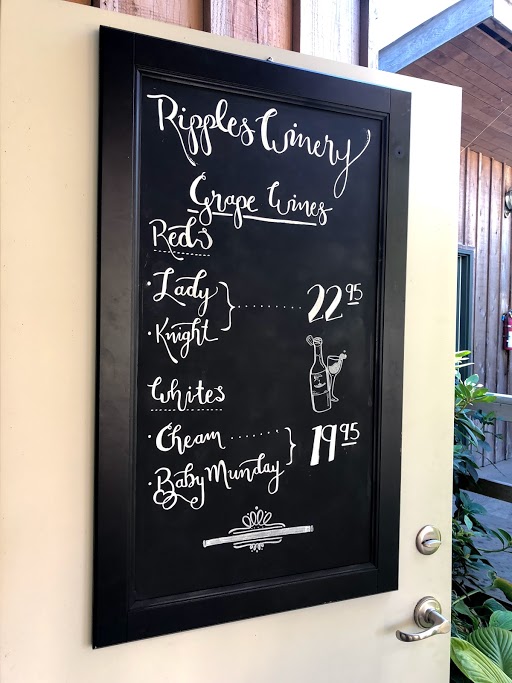 Ripples Winery
Grape Wines
Reds
· Lady
· Knight
22 95
Whites
· Cheam
· Baby Munday
19 95